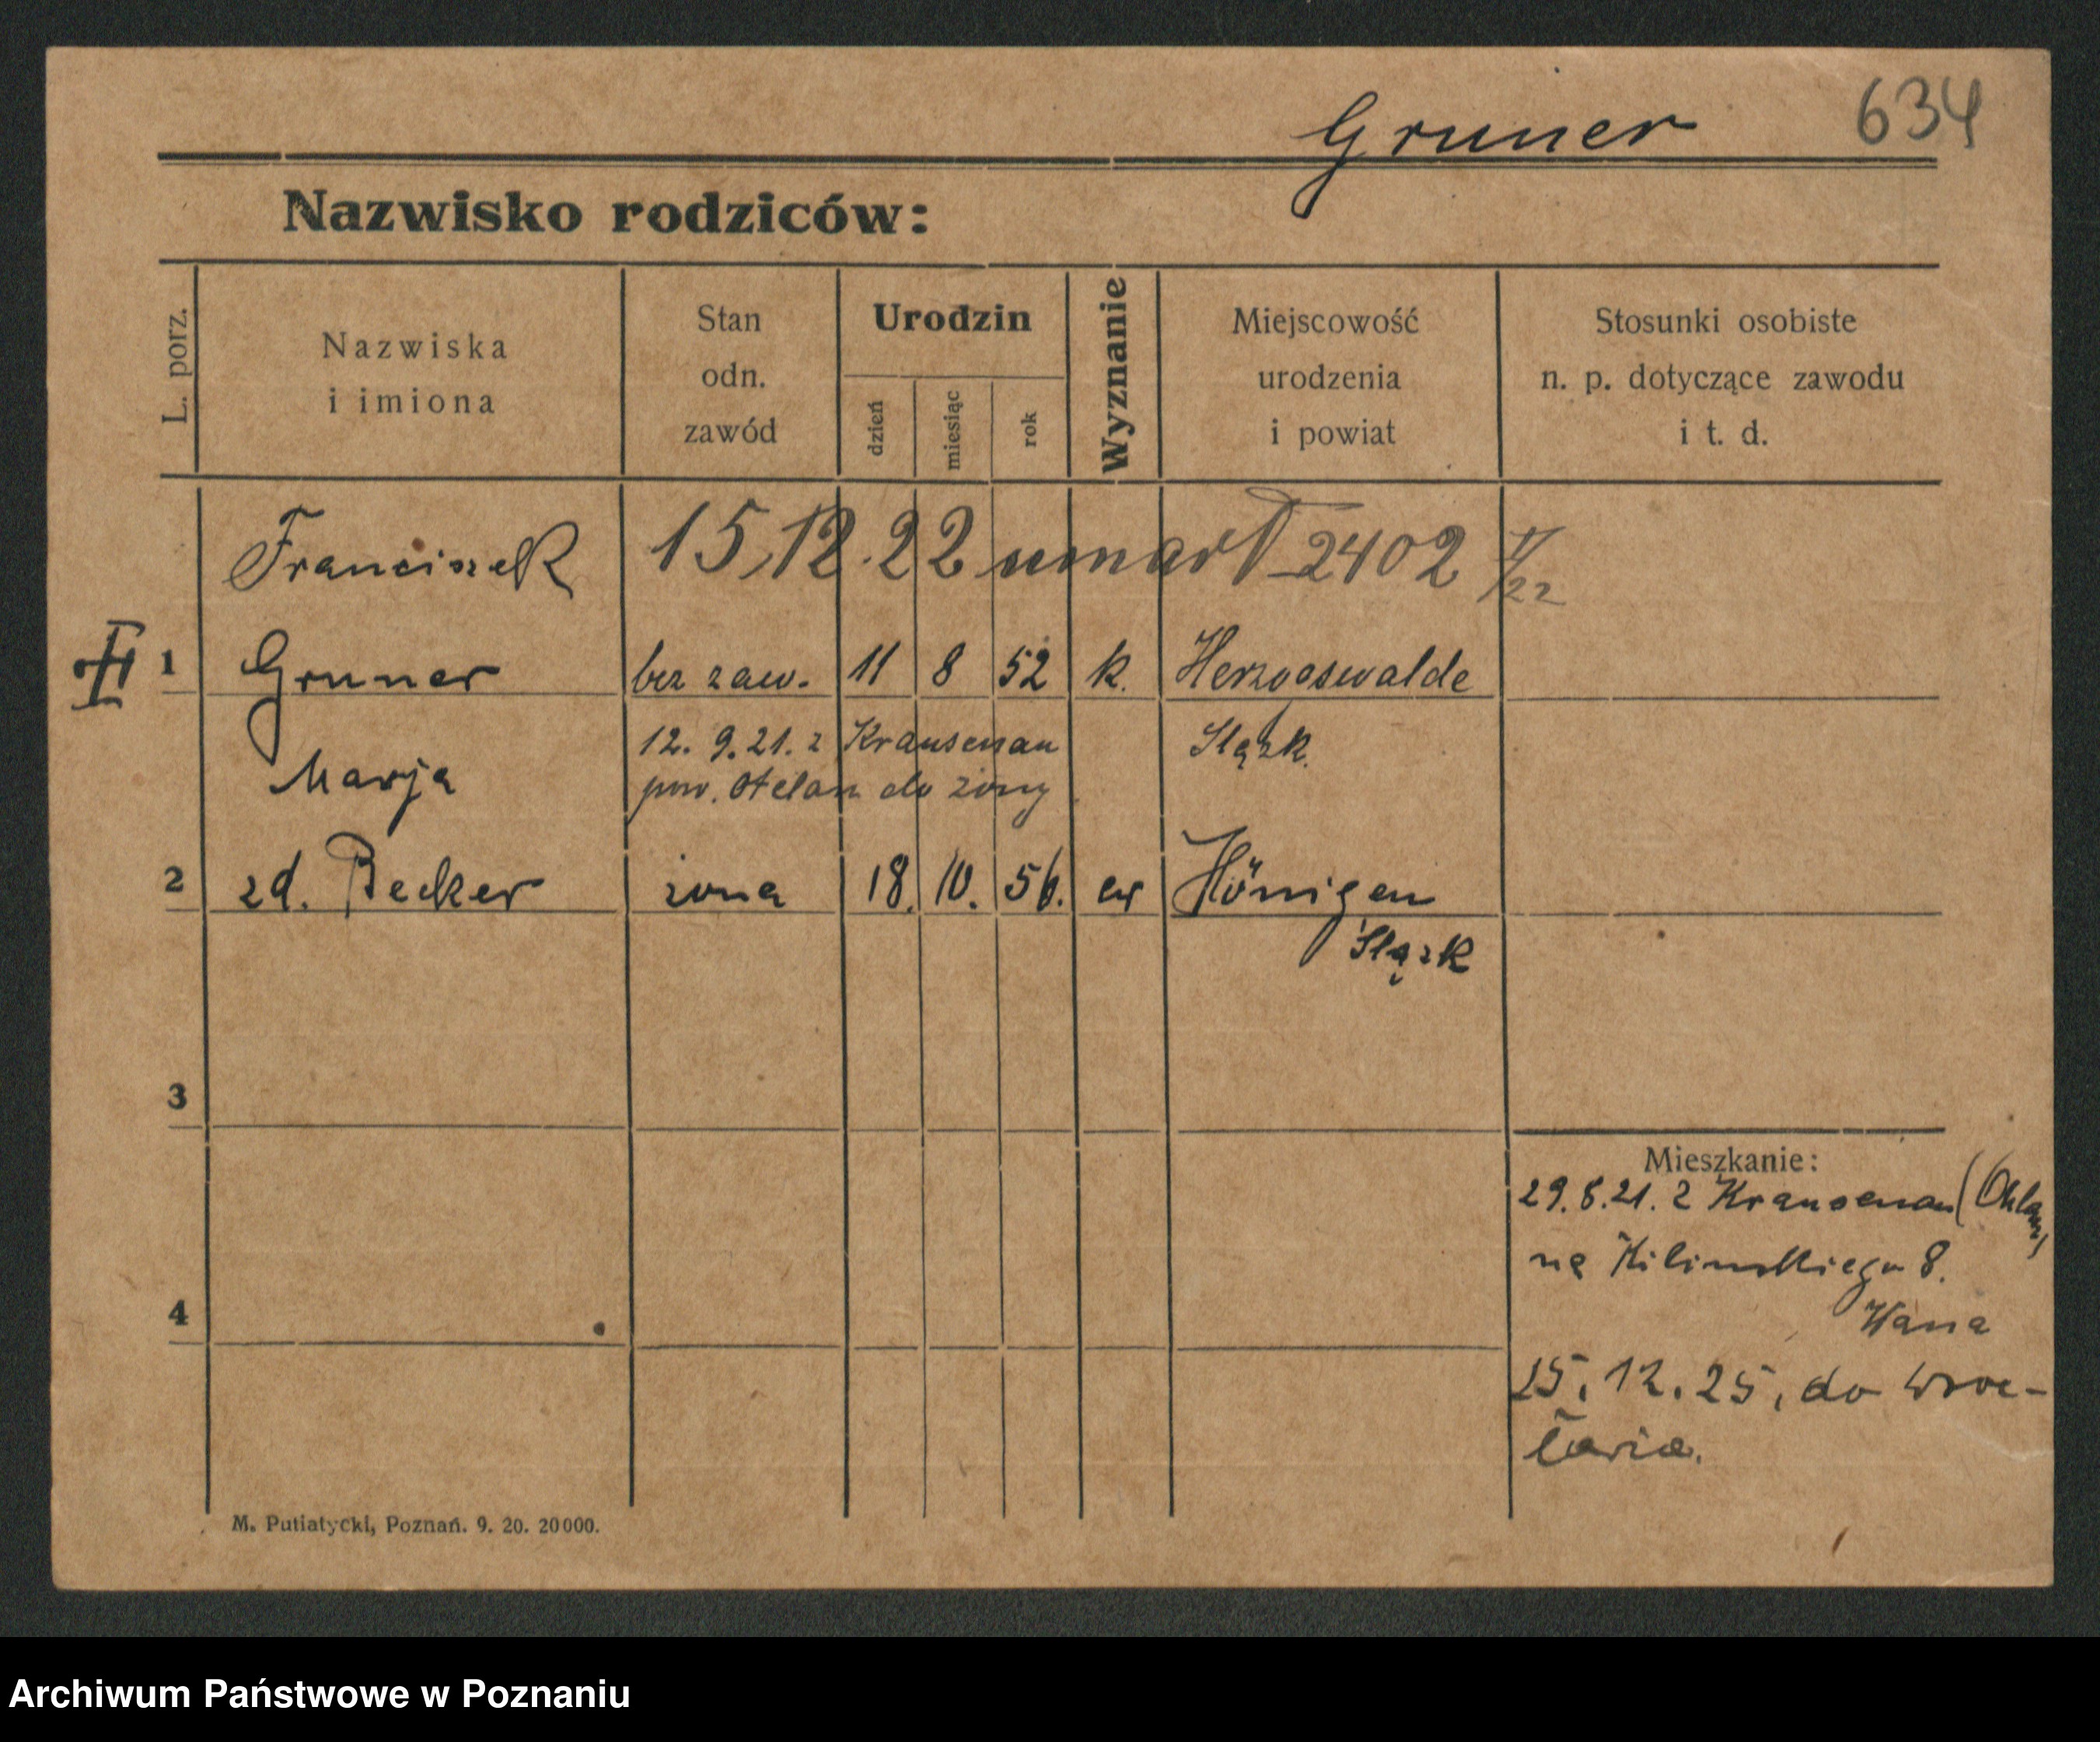 Gruner 634
Nazwisko rodziców:
L. porz.
Nazwiska
i imiona
Stan
odn.
zawód
Urodzin
dzień
miesiąc
rok
Wyznanie
Miejscowość
urodzenia
i powiat
Stosunki osobiste
n. p. dotyczące zawodu
i t. d.
Franciszek 15,12.22 umarł 2402 /22
1 Gruner bez zaw. 11 8 52 k. Herzogswalde
12. 9. 21. z Krausenau Ślązk.
Marja pow. do żony
2 zd. Becker żona 18. 10. 56. ew Hönigen
Ślązk
3
4
Mieszkanie:
29.8.21. z Krausenau (Ohlau)
na Kilinskiego 8.
15. 12. 25. do Wroc-
ławia.
M. Putiatycki, Poznań. 9. 20. 20000.
Archiwum Państwowe w Poznaniu